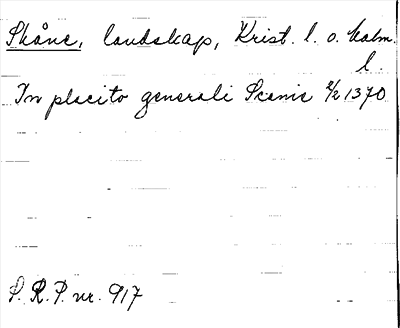 Skåne, landskap, Krist. l. o. Malm.
l.
In placito generali Scanie 2/2 1370
S. R. P. nr. 917